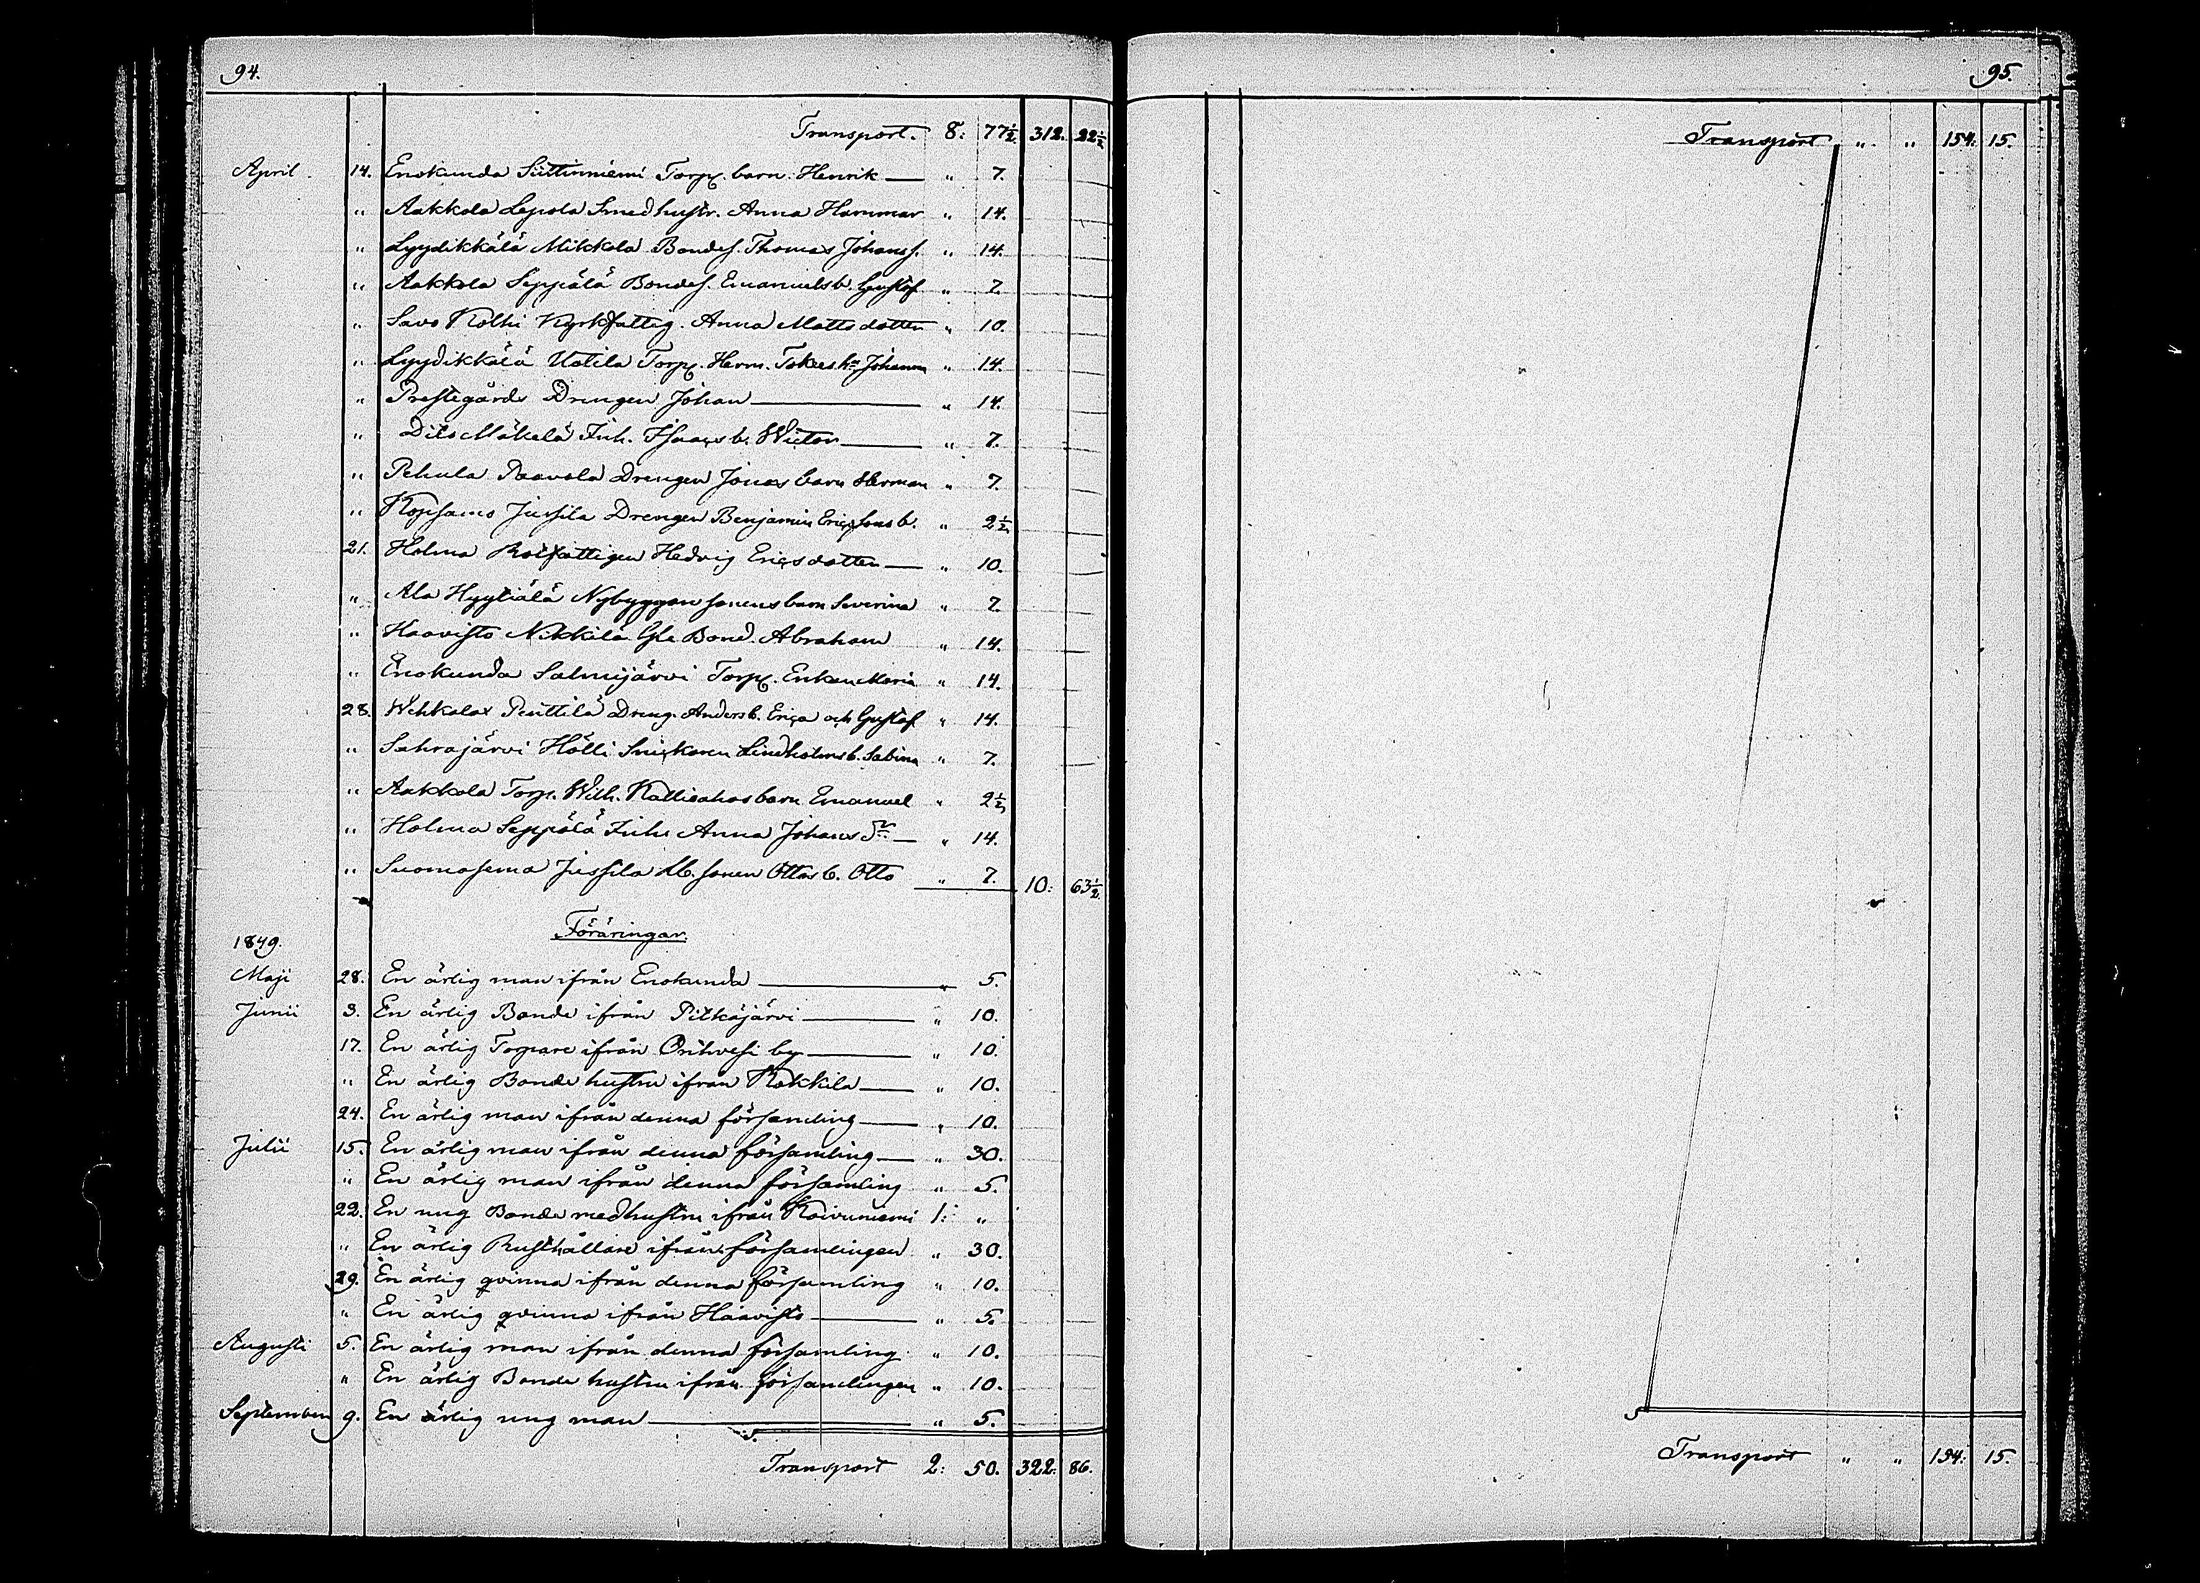 94.
Transport. 8: 77½. 312. 22½
April. 14. Enokunda Siittinniemi Torp. barn Henrik — " 7.
" Aakkola Lepola Smed hustr. Anna Hammar " 14.
" Lyydikkälä Mikkola Bondes. Thomas Johans s. " 14.
" Aakkola Seppälä Bondes. Emanuels b. Gustaf " 7.
" Savo Kolhi Kyrkfattig. Anna Matts dotter " 10.
" Lyydikkälä Uotila Torp. Herm. Johanna " 14.
" Prestegårds Drengen Johan — " 14.
" Dito Mäkelä Inh. Isaacs b. Wictor — " 7.
" Pehula Paavola Drengen Jonas barn Herman " 7.
" Kopsamo Jussila Drengen Benjamin Ericssons b. " 2½
21. Holma Rotfattigen Hedvig Ericsdotter — " 10.
" Ala Hyytiälä Nybyggare sonens barn Severina " 7.
" Haavisto Nikkilä Gle Bond. Abraham " 14.
" Enokunda Salmijärvi Torp. Enkan Maria " 14.
28. Wehkalax Penttilä Dreng. Anders b. Erica och Gustaf " 14.
" Sahrajärvi Hölli Snickaren Lindholms b. Sabina " 7.
" Aakkola Torp. Wilh. Kallioahos barn Emanuel " 2½
" Holma Seppälä Inhs Anna Johans Dr — " 14.
" Suomasema Jussila Ab. sonen Ottos b. Otto " 7. 10: 63½.
Föräringar.
1849.
Maji 28. En ärlig man ifrån Enokunda — " 5.
Junii 3. En ärlig Bonde ifrån Pitkäjärvi — " 10.
17. En ärlig Torpare ifrån Orihvesi by — " 10.
" En ärlig Bonde hustru ifrån Kokkila — " 10.
24. En ärlig man ifrån denna församling — " 10.
Julii 15. En ärlig man ifrån denna församling — " 30.
" En ärlig man ifrån denna församling " 5.
22. En ung Bonde med hustru ifrån Koivuniemi 1: "
" En ärlig Rusthållare ifrån församlingen " 30.
29. En ärlig qvinna ifrån denna församling " 10.
" En ärlig qvinna ifrån Haavisto — " 5.
Augusti 5. En ärlig man ifrån denna församling " 10.
" En ärlig Bonde hustru ifrån församlingen " 10.
September 9. En ärlig ung man — " 5.
Transport 2: 50. 322: 86.
95.
Transport " " 154: 15.
Transport " " 154: 15.